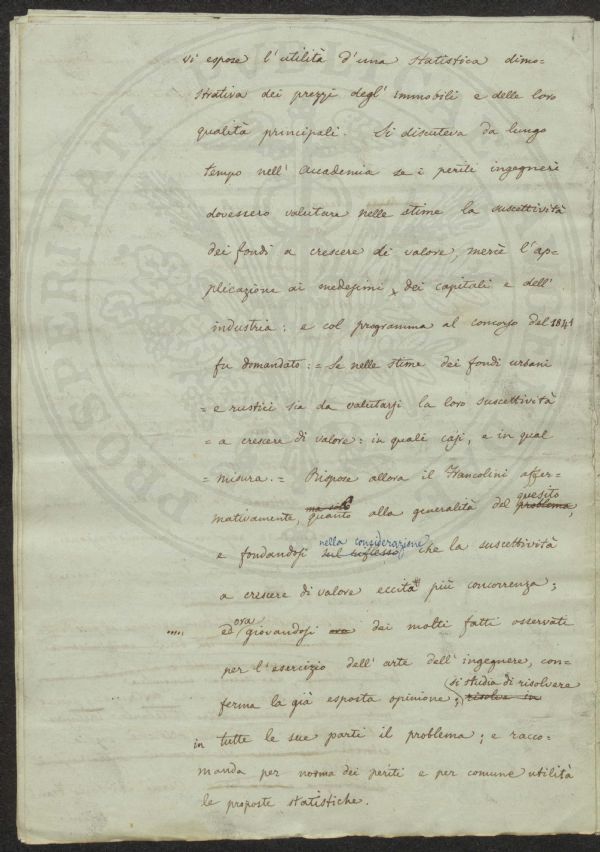 vi espose l'utilità d'una statistica dimo=
strativa dei prezzi degl'immobili e delle loro
qualità principali. Si discuteva da lungo
tempo nell'Accademia se i periti ingegneri
dovessero valutare nelle stime la suscettività
dei fondi a crescere di valore, mercè l'ap=
plicazione ai medesimi, dei capitali e dell'
industria: e col programma al concorso del 1841
fu domandato: = Se nelle stime dei fondi urbani
= e rustici sia da valutarsi la loro suscettività
= a crescere di valore: in quali casi, e in qual
= misura. = Rispose allora il Francolini affer=
ma solo quesito
mativamente, quanto alla generalità del problema,
nella considerazione
e fondandosi sul riflesso che la suscettività
a crescere di valore eccita più concorrenza;
ora
ed giovandosi ora dei molti fatti osservati
per l'esercizio dell'arte dell'ingegnere, con=
si studia di risolvere
ferma la già esposta opinione; risolve in
in tutte le sue parti il problema; e racco=
manda per norma dei periti e per comune utilità
le proposte statistiche.
PROSPERITATI PUBLICAE